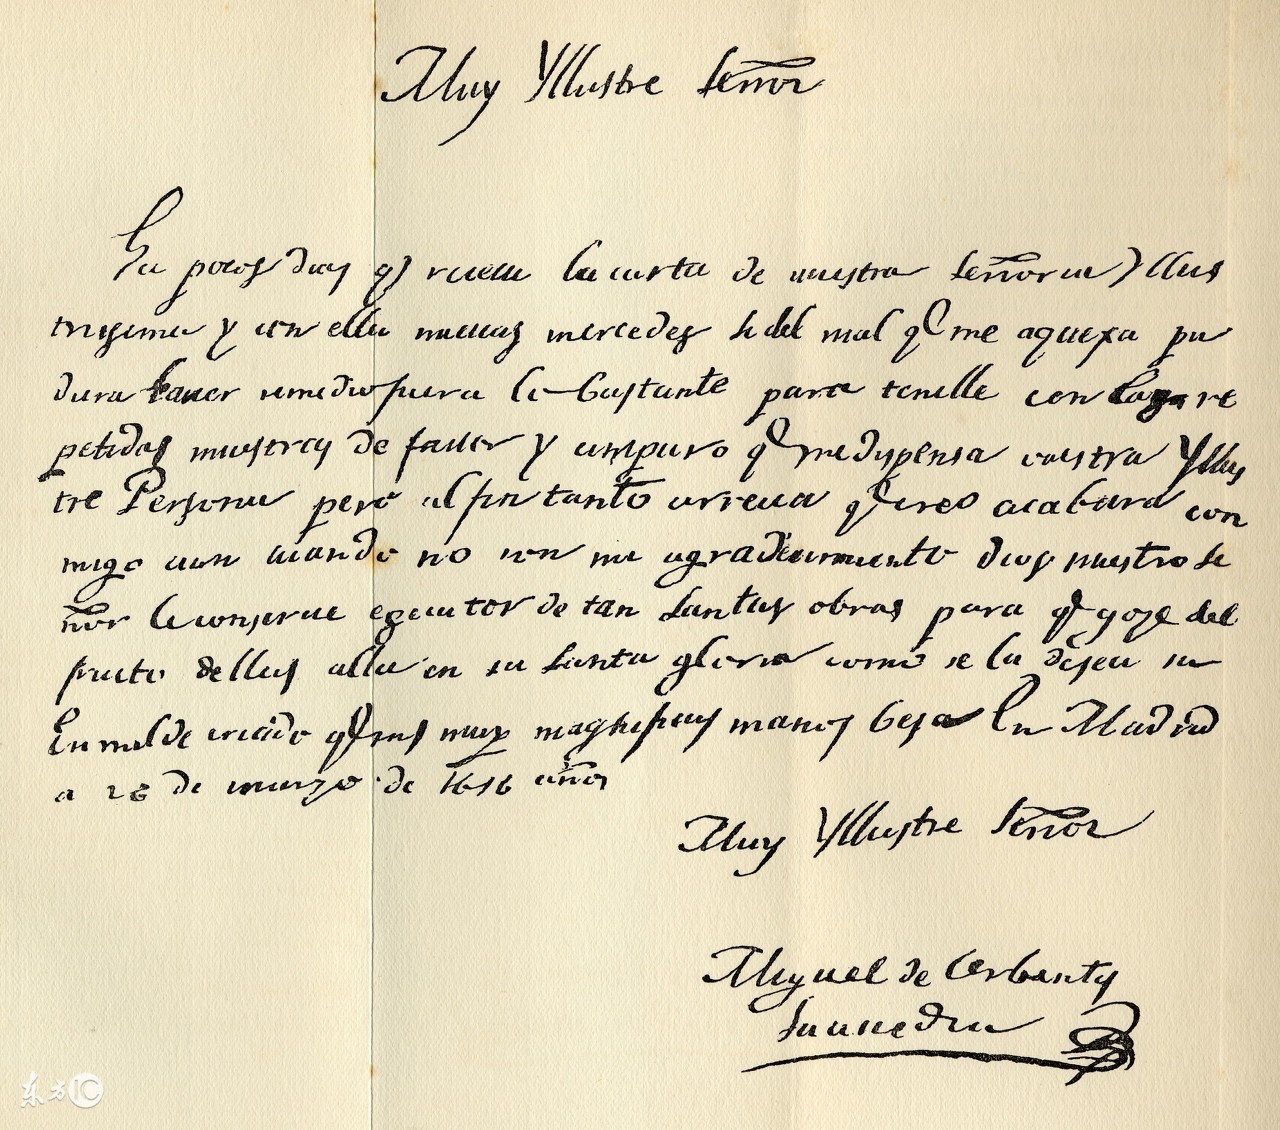 Muy Yllustre Señor
Ha pocos dias q̃ receui la carta de vuestra Señoria Yllus
trissima y con ella nueuas mercedes si del mal q̃ me aquexa pu
diera hauer remedio fuera lo bastante para tenelle con las re
petidas muestras de fauor y amparo q̃ me dispensa vuestra Yllus
tre Persona pero al fin tanto arrecia q̃ creo acabara con
migo aun cuando no con mi agradecimiento dios nuestro Se
ñor le conserue egecutor de tan Santas obras para q̃ goze del
fruto dellas alla en su Santa gloria como se la desea su
humilde criado q̃ sus muy magnificas manos besa En Madrid
a 26 de marzo de 1616 años
Muy Yllustre Señor
Miguel de Cerbantes
Saauedra
东方IC